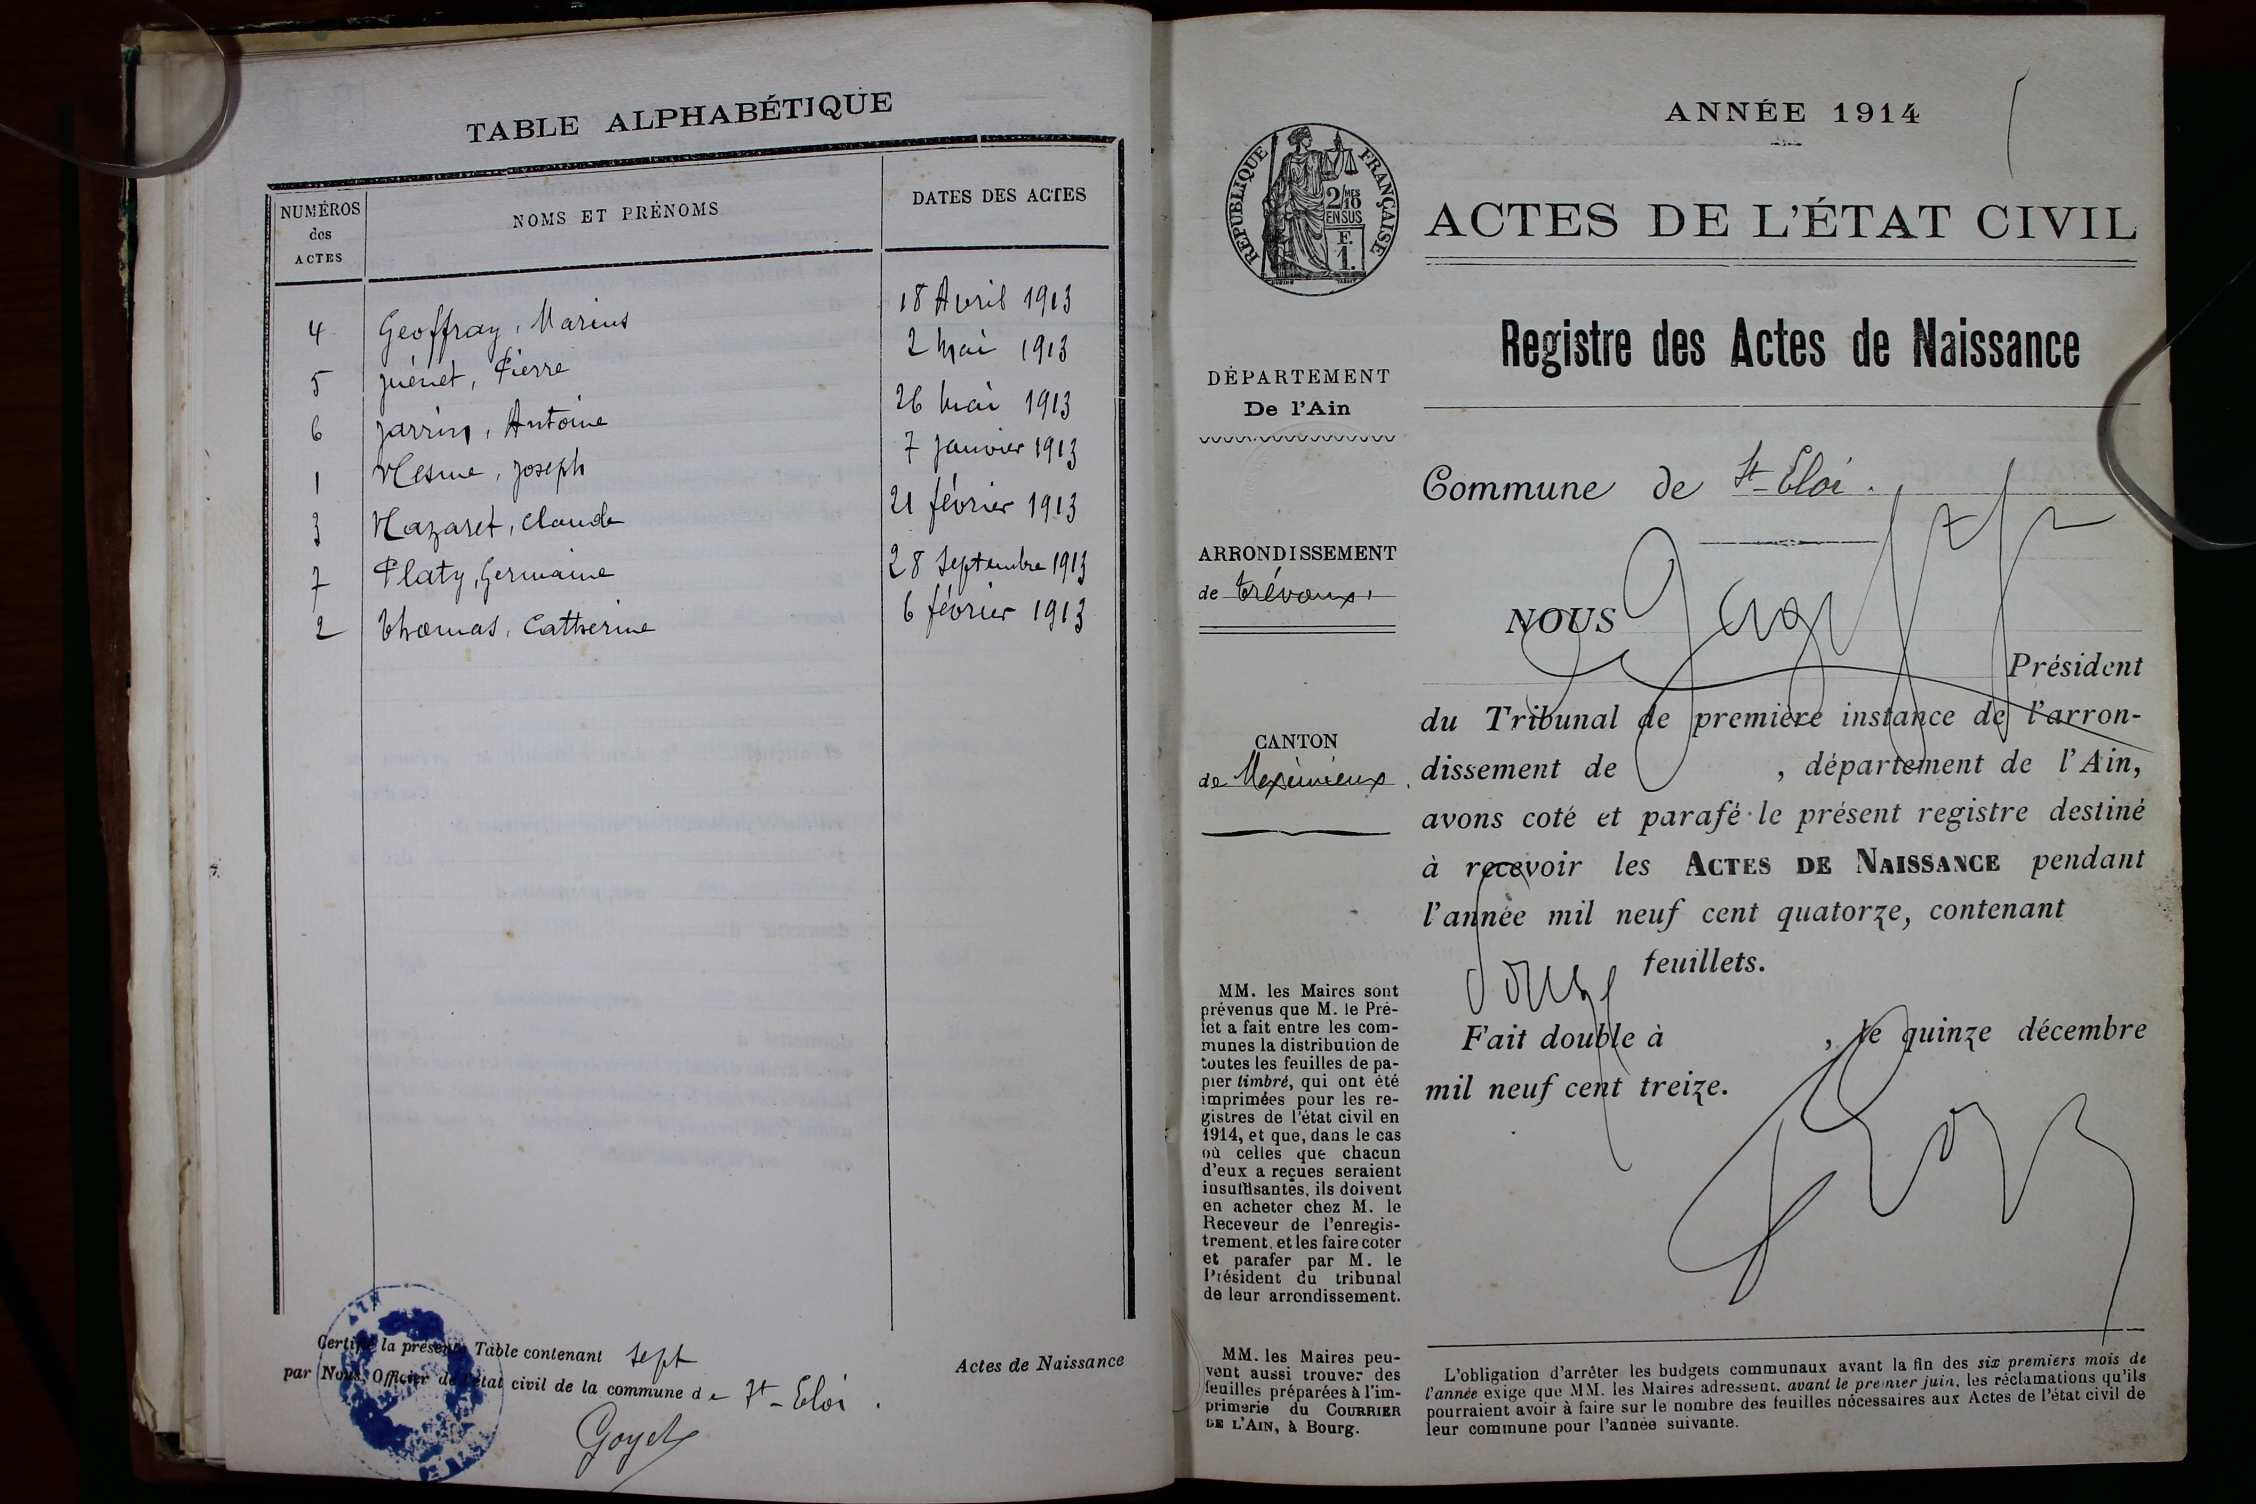 TABLE ALPHABÉTIQUE
NUMÉROS des ACTES
NOMS ET PRÉNOMS
DATES DES ACTES
4 Geoffray, Marius 18 Avril 1913
5 Guénet, Pierre 2 Mai 1913
6 Jarrin, Antoine 26 Mai 1913
1 Mesme, Joseph 7 Janvier 1913
3 Nazaret, Claude 21 février 1913
7 Platy, Germaine 28 Septembre 1913
2 Thomas, Catherine 6 février 1913
Certifié la présente Table contenant sept Actes de Naissance
par Nous, Officier de l'état civil de la commune de St-Eloi.
Goyet
ANNÉE 1914
RÉPUBLIQUE FRANÇAISE
2/10 MES
EN SUS
F.
1.
ACTES DE L'ÉTAT CIVIL
Registre des Actes de Naissance
DÉPARTEMENT
De l'Ain
ARRONDISSEMENT
de Trévoux
CANTON
de Meximieux.
MM. les Maires sont
prévenus que M. le Pré-
fet a fait entre les com-
munes la distribution de
toutes les feuilles de pa-
pier timbré, qui ont été
imprimées pour les re-
gistres de l'état civil en
1914, et que, dans le cas
où celles que chacun
d'eux a reçues seraient
insuffisantes, ils doivent
en acheter chez M. le
Receveur de l'enregis-
trement, et les faire coter
et parafer par M. le
Président du tribunal
de leur arrondissement.
MM. les Maires peu-
vent aussi trouver des
feuilles préparées à l'im-
primerie du COURRIER
DE L'AIN, à Bourg.
Commune de St-Eloi.
NOUS
Président
du Tribunal de première instance de l'arron-
dissement de , département de l'Ain,
avons coté et parafé le présent registre destiné
à recevoir les ACTES DE NAISSANCE pendant
l'année mil neuf cent quatorze, contenant
douze feuillets.
Fait double à , le quinze décembre
mil neuf cent treize.
L'obligation d'arrêter les budgets communaux avant la fin des six premiers mois de
l'année exige que MM. les Maires adressent, avant le premier juin, les réclamations qu'ils
pourraient avoir à faire sur le nombre des feuilles nécessaires aux Actes de l'état civil de
leur commune pour l'année suivante.